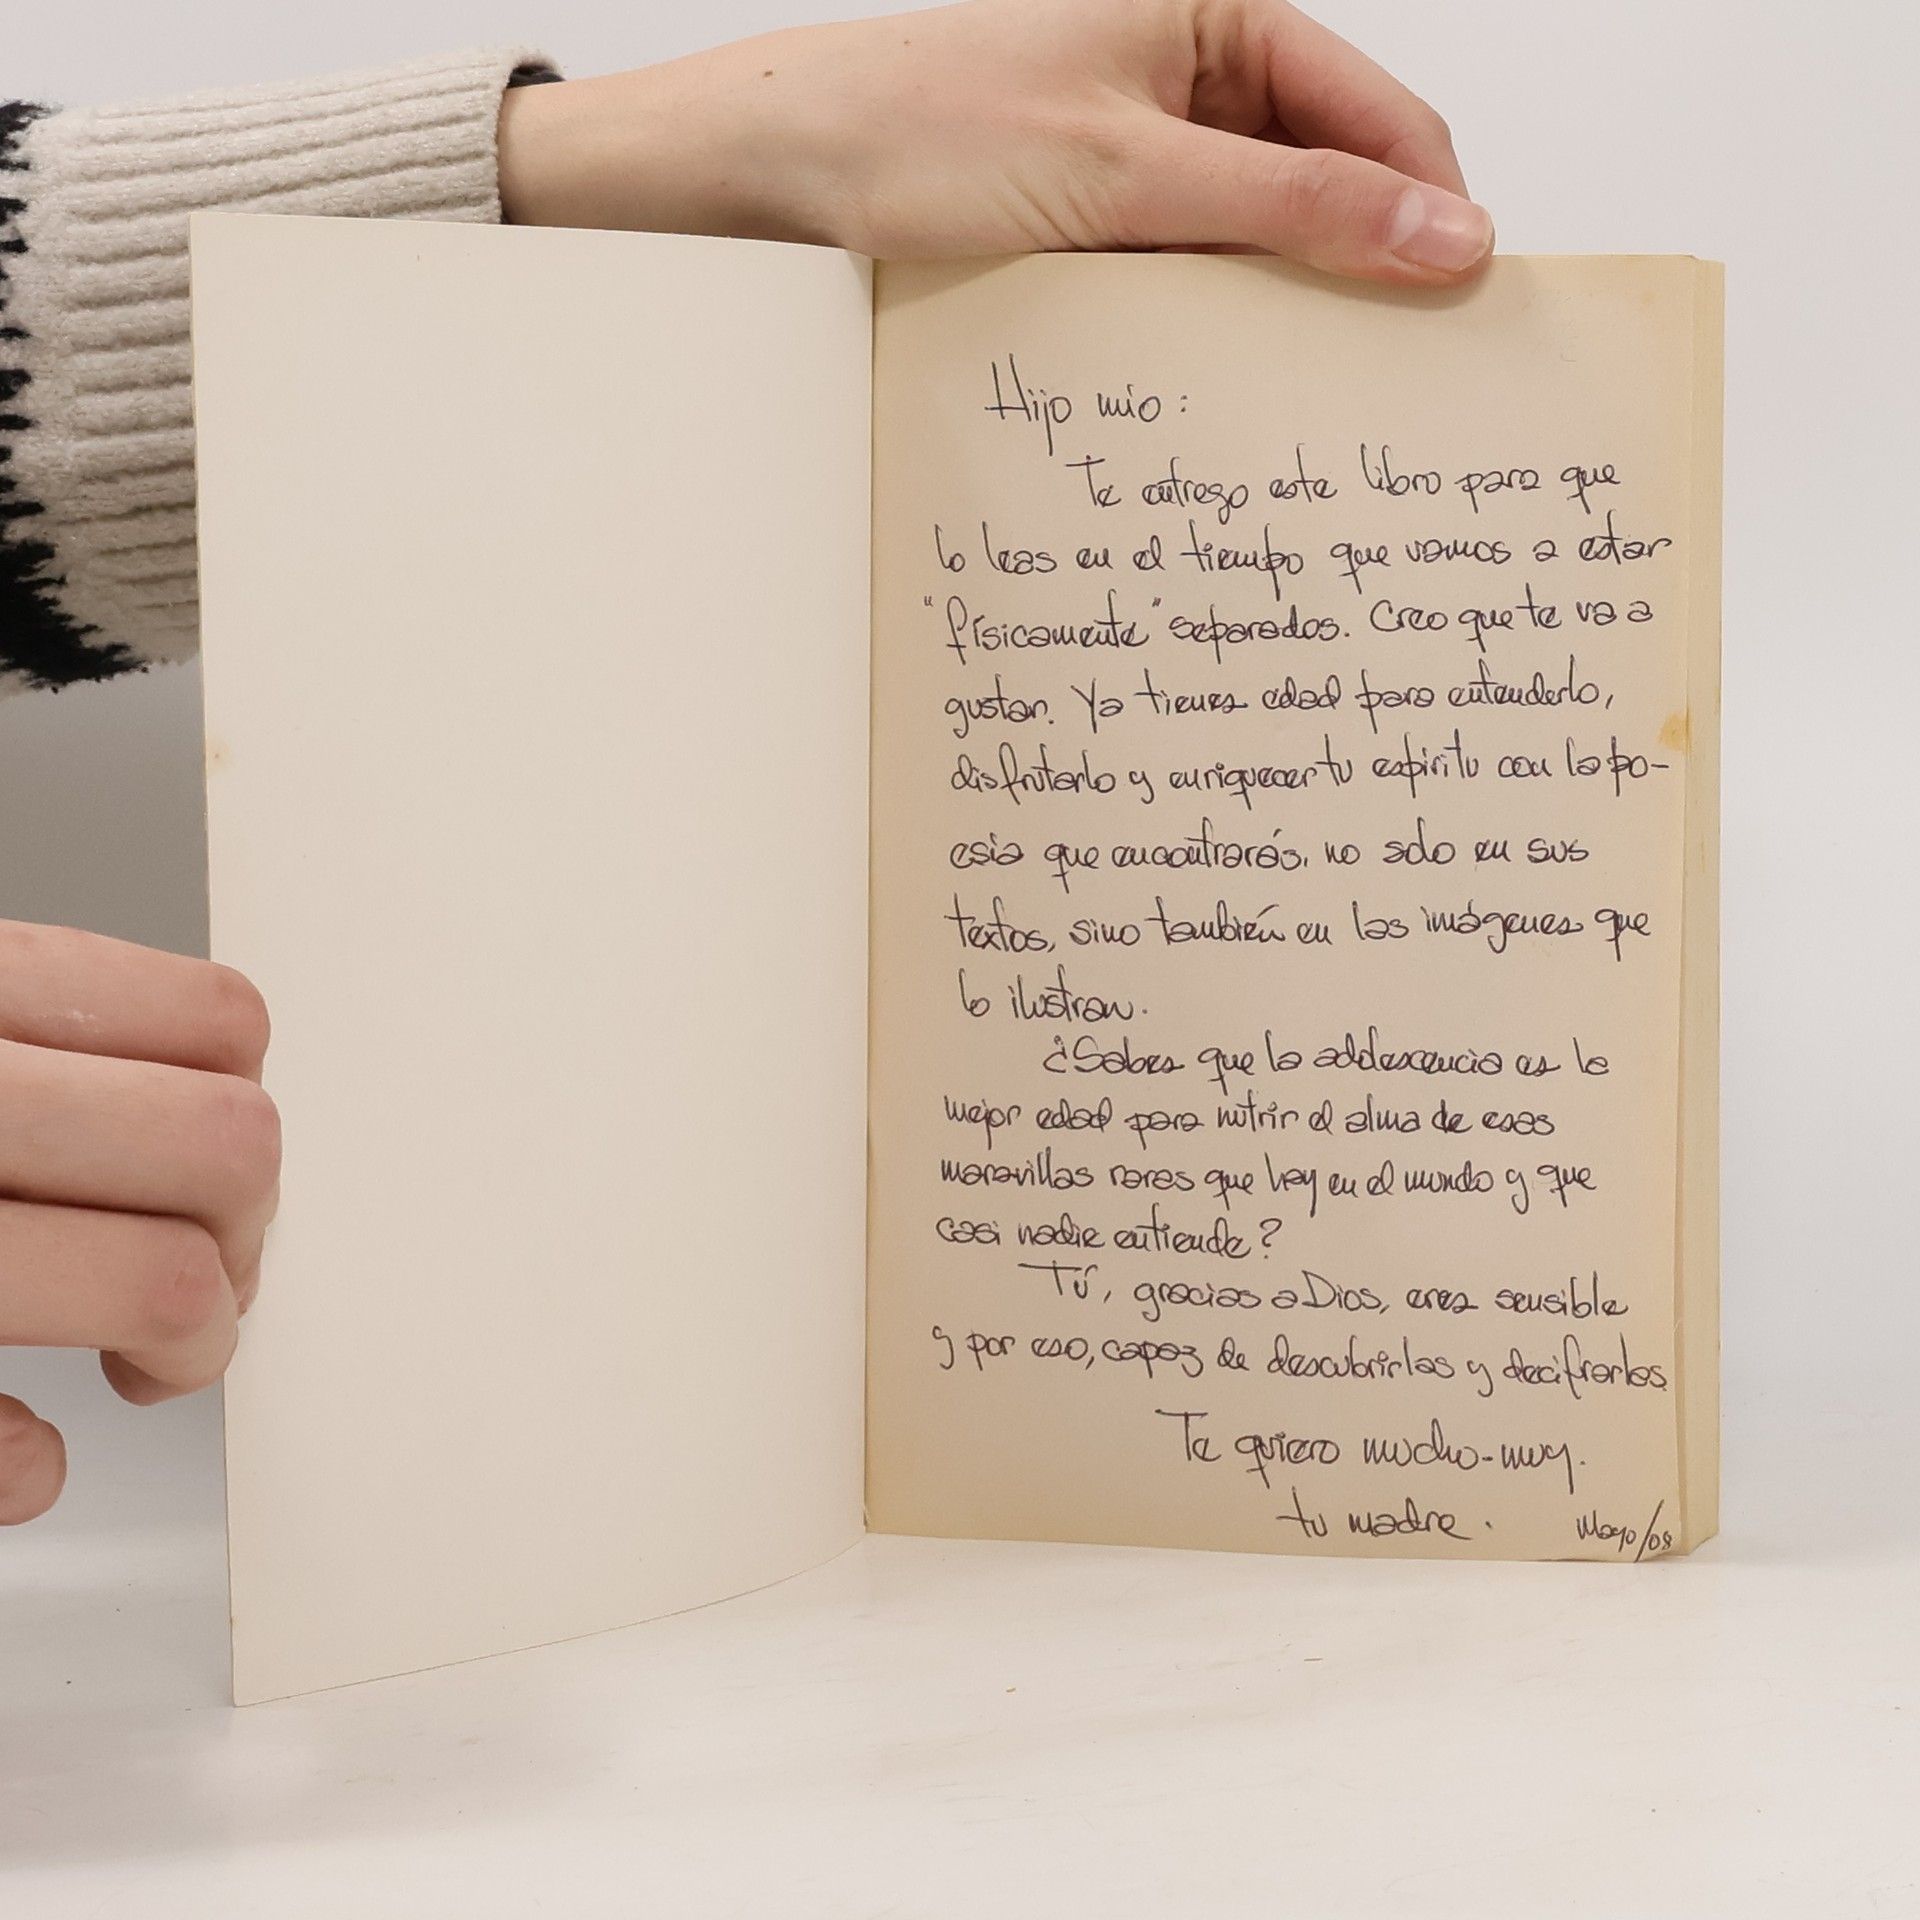 Hijo mío:
Te entrego este libro para que
lo leas en el tiempo que vamos a estar
"físicamente" separados. Creo que te va a
gustar. Ya tienes edad para entenderlo,
disfrutarlo y enriquecer tu espíritu con la po-
esía que encontrarás, no solo en sus
textos, sino también en las imágenes que
lo ilustran.
¿Sabes que la adolescencia es la
mejor edad para nutrir el alma de esas
maravillas raras que hay en el mundo y que
casi nadie entiende?
Tú, gracias a Dios, eres sensible
y por eso, capaz de descubrirlas y decifrarlas.
Te quiero mucho-muy.
tu madre.
Mayo/08